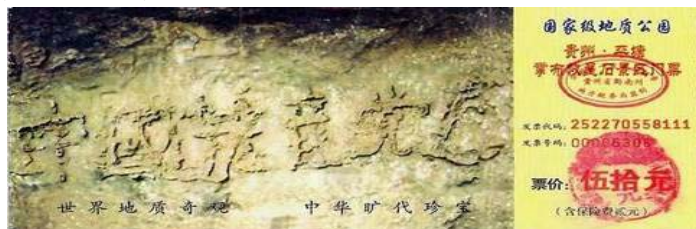 中国共产党
世界地质奇观 中华旷代珍宝
国家级地质公园
贵州·平塘
掌布藏字石景区门票
发票代码: 252270558111
发票号码:
票价: 伍拾元
(含保险费贰元)